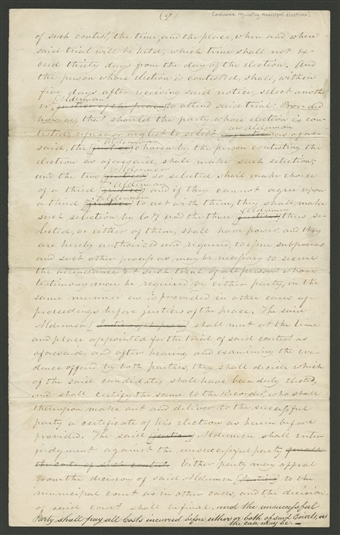 (5)
of such contest, the time, and the place, when and where
said trial will be held, which time shall not ex-
ceed thirty days from the day of the election. And
the person whose election is contested, shall, within
five days after receiving said notice, select another
Alderman
to attend said trial. Provided
however that should the party whose election is con-
tested refuse or neglect to select an Alderman as afore-
said, the party contesting the
election as aforesaid, shall make such selection;
Aldermen
and the two so selected shall make choice
Alderman
of a third and if they cannot agree upon
Alderman
a third to act with them, they shall make
such selection by lot, and the three thus se-
lected, or either of them, shall have power and they
are hereby authorized and required, to issue subpoenas
and such other process as may be necessary to secure
the attendance at such trial of all persons whose
testimony may be required by either party, in the
same manner as is provided in other cases of
proceedings before justices of the peace. The said
Aldermen shall meet at the time
and place appointed for the trial of said contest as
aforesaid, and after hearing and examining the evi-
dence offered by both parties, they shall decide which
of the said candidates shall have been duly elected,
and shall certify the same to the Recorder, who shall
thereupon make out and deliver to the successful
party a certificate of his election as herein before
provided. The said Aldermen shall enter
judgment against the unsuccessful party
Either party may appeal
from the decision of said Aldermen to the
municipal court as in other cases, and the decision
of said court shall be final, and the unsuccessful
Party shall pay all Costs incurred before either or both of said Courts, as
the case may be.